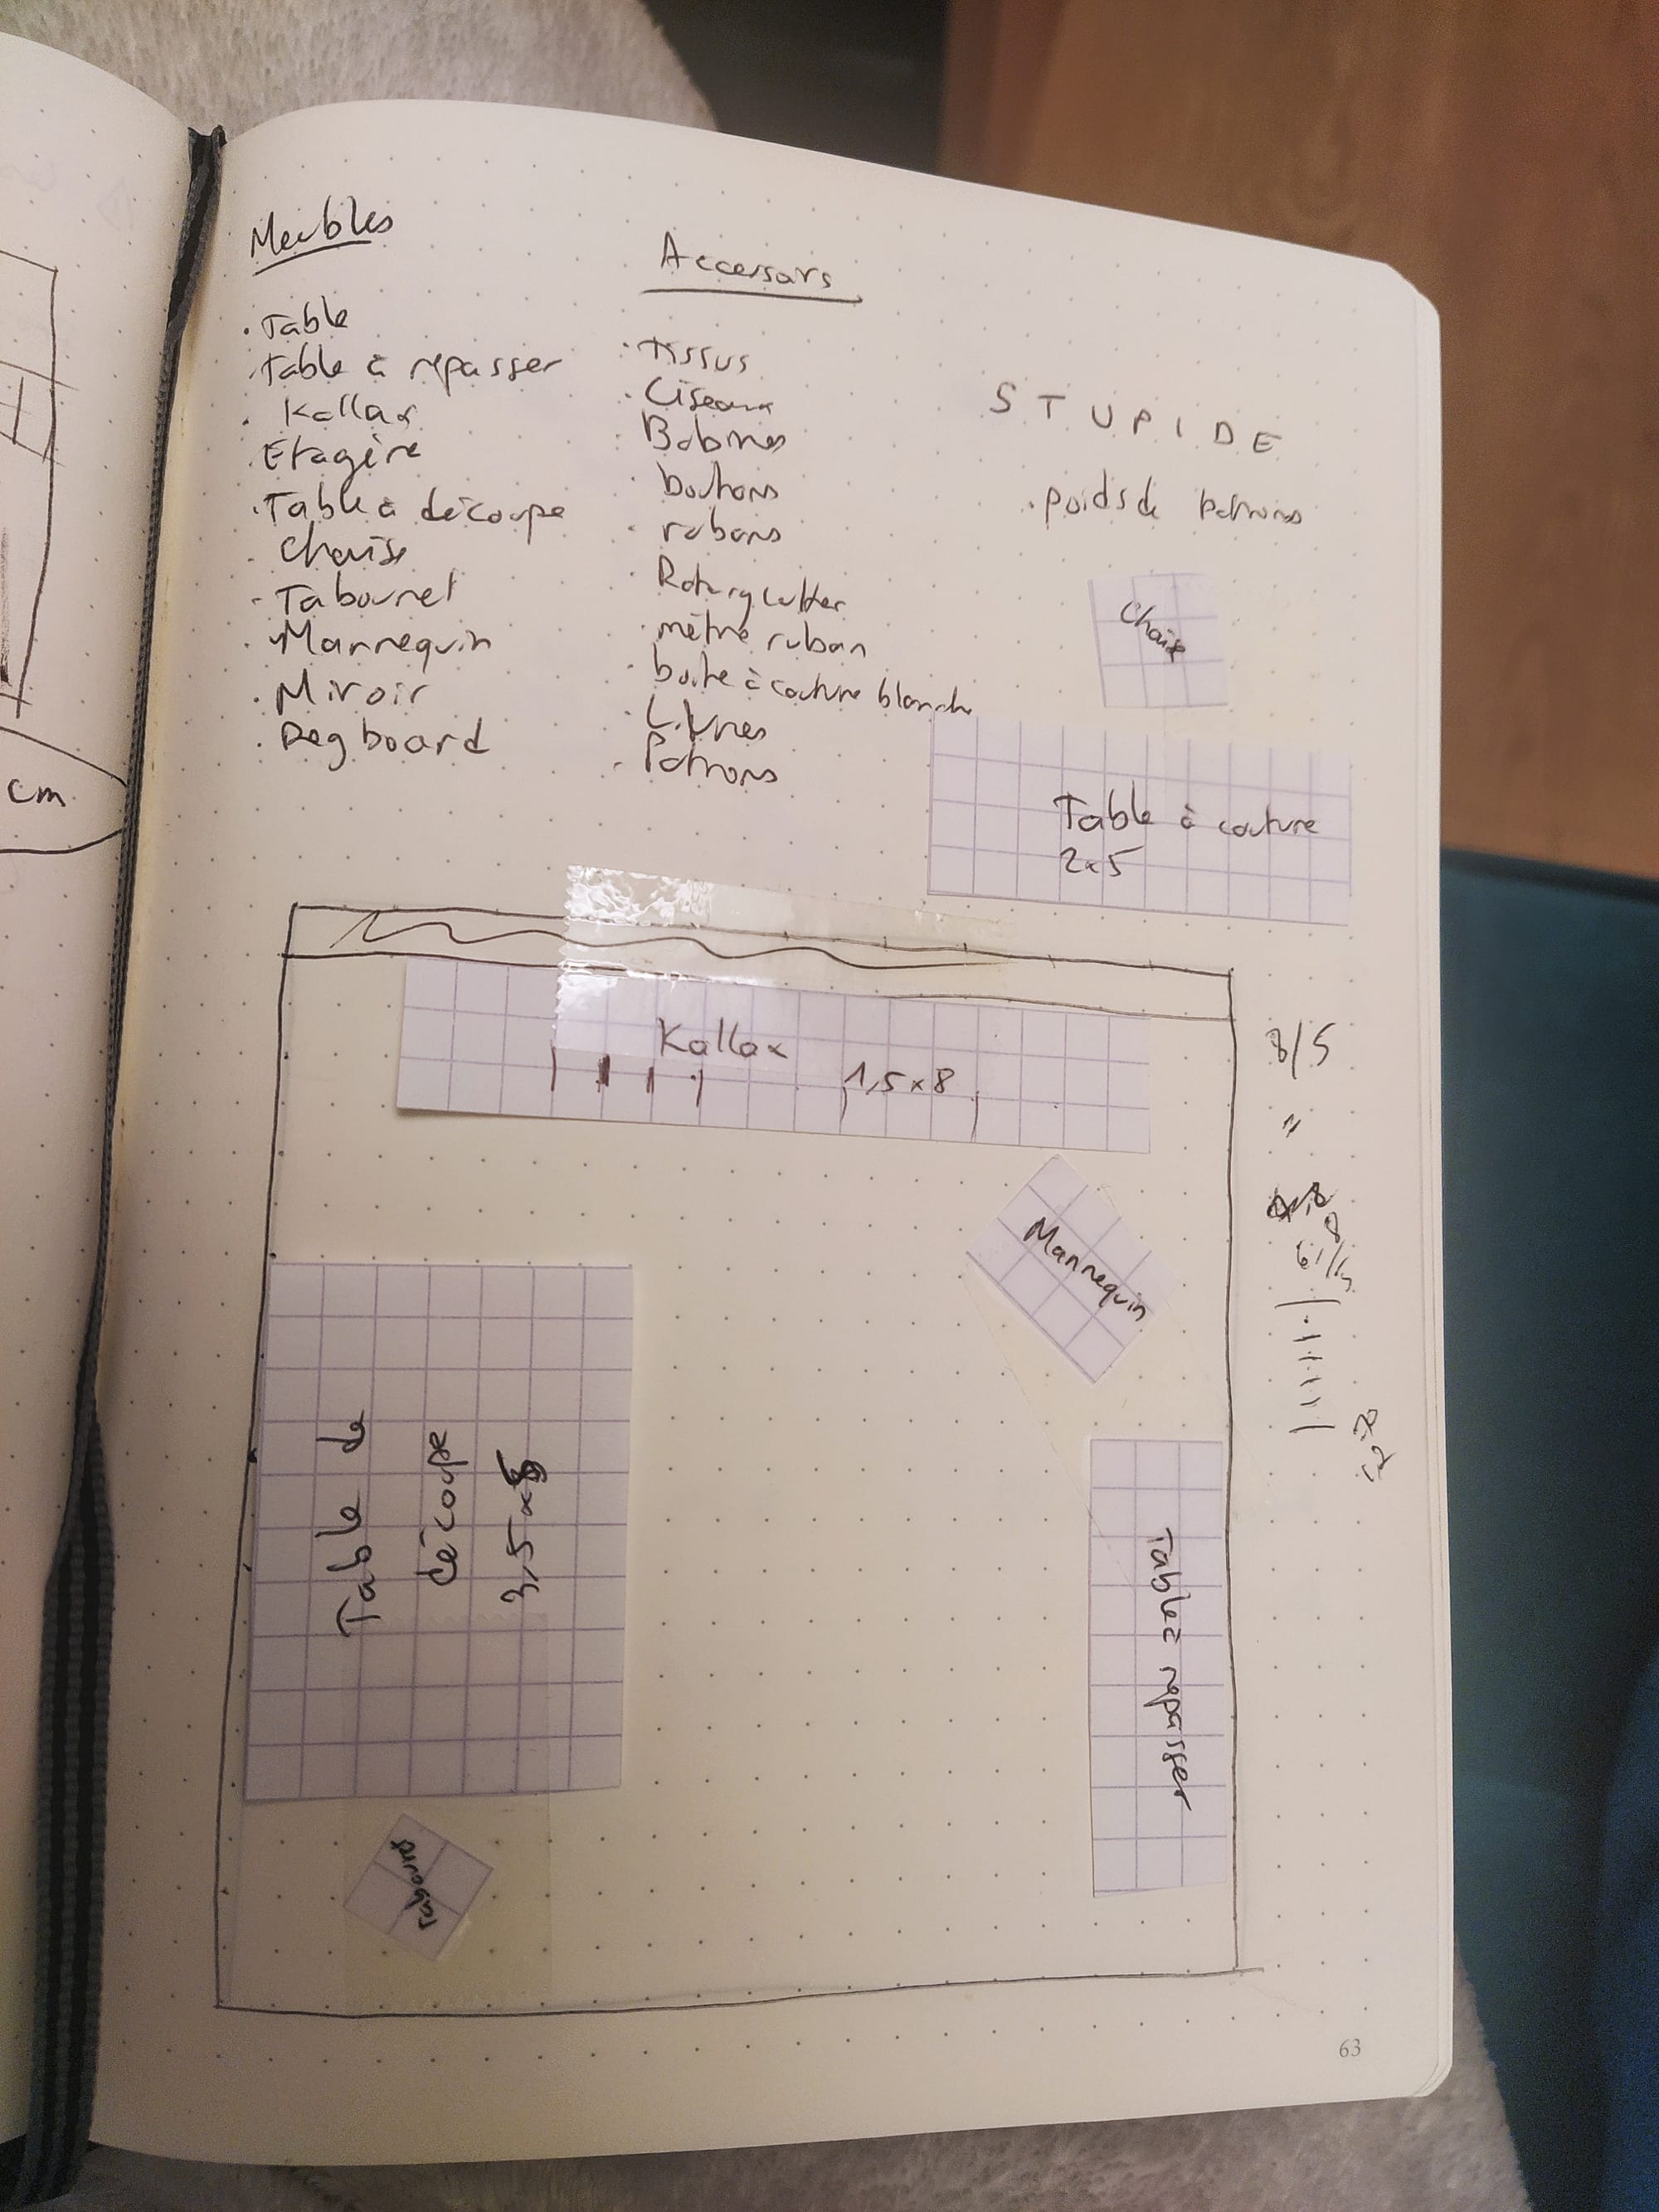 Meubles
. Table
. Table à repasser
. Kallax
Etagère
. Table à découpe
. Chaise
- Tabouret
. Mannequin
. Miroir
. Pegboard
Accessoirs
. tissus
. Ciseaux
. Bobines
. boutons
. rubans
. Rotary cutter
. mètre ruban
. boite à couture blanche
. Livres
. Patrons
STUPIDE
. poids de patrons
Chaise
Table à couture
2x5
cm
Kallax
1,5 x 8
8/5
"
Mannequin
Table de
découpe
3,5 x 5
Table à repasser
Tabouret
63